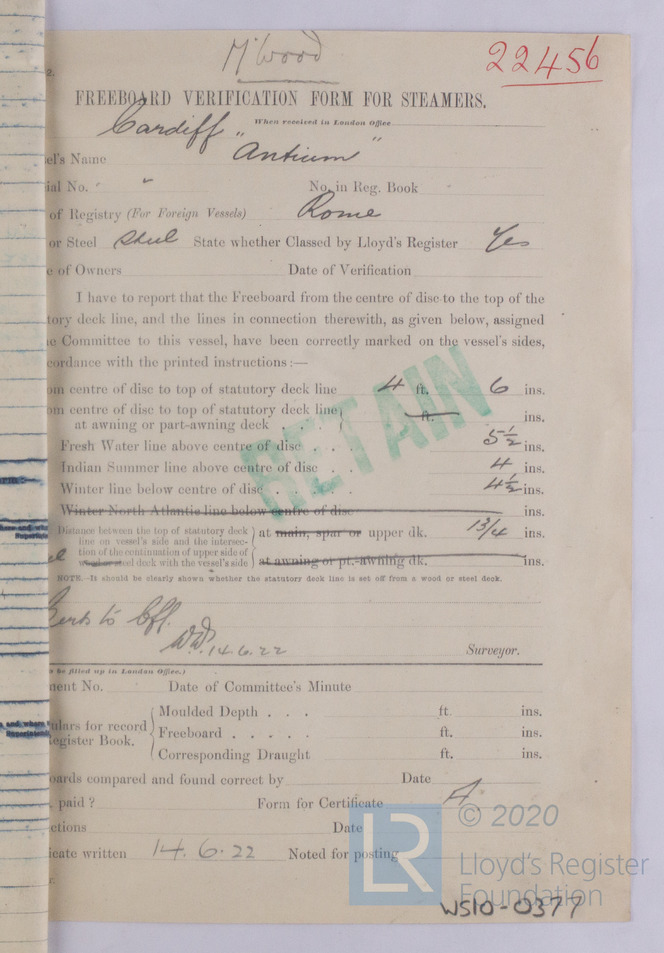 Mr Wood
22456
2.
FREEBOARD VERIFICATION FORM FOR STEAMERS.
Cardiff When received in London Office
sel's Name "Antium"
ial No. " No. in Reg. Book
of Registry (For Foreign Vessels) Rome
or Steel Steel State whether Classed by Lloyd's Register Yes
e of Owners Date of Verification
I have to report that the Freeboard from the centre of disc to the top of the
tory deck line, and the lines in connection therewith, as given below, assigned
e Committee to this vessel, have been correctly marked on the vessel's sides,
cordance with the printed instructions :—
om centre of disc to top of statutory deck line 4 ft. 6 ins.
om centre of disc to top of statutory deck line
at awning or part-awning deck . . ft. ins.
Fresh Water line above centre of disc . . 5½ ins.
Indian Summer line above centre of disc . . 4 ins.
Winter line below centre of disc . . . . 4½ ins.
Winter North Atlantic line below centre of disc ins.
Distance between the top of statutory deck
line on vessel's side and the intersec-
tion of the continuation of upper side of
wood or steel deck with the vessel's side
at main, spar or upper dk. 1 3/4 ins.
at awning or pt.-awning dk. ins.
NOTE.—It should be clearly shown whether the statutory deck line is set off from a wood or steel deck.
RETAIN
to
14.6.22 Surveyor.
be filled up in London Office.)
ment No. Date of Committee's Minute
ulars for record
egister Book.
Moulded Depth . . . ft. ins.
Freeboard . . . . . ft. ins.
Corresponding Draught ft. ins.
oards compared and found correct by Date
. paid ? Form for Certificate A.
ctions Date
icate written 14.6.22 Noted for posting
LR
© 2020
Lloyd's Register
Foundation
WS10-0377